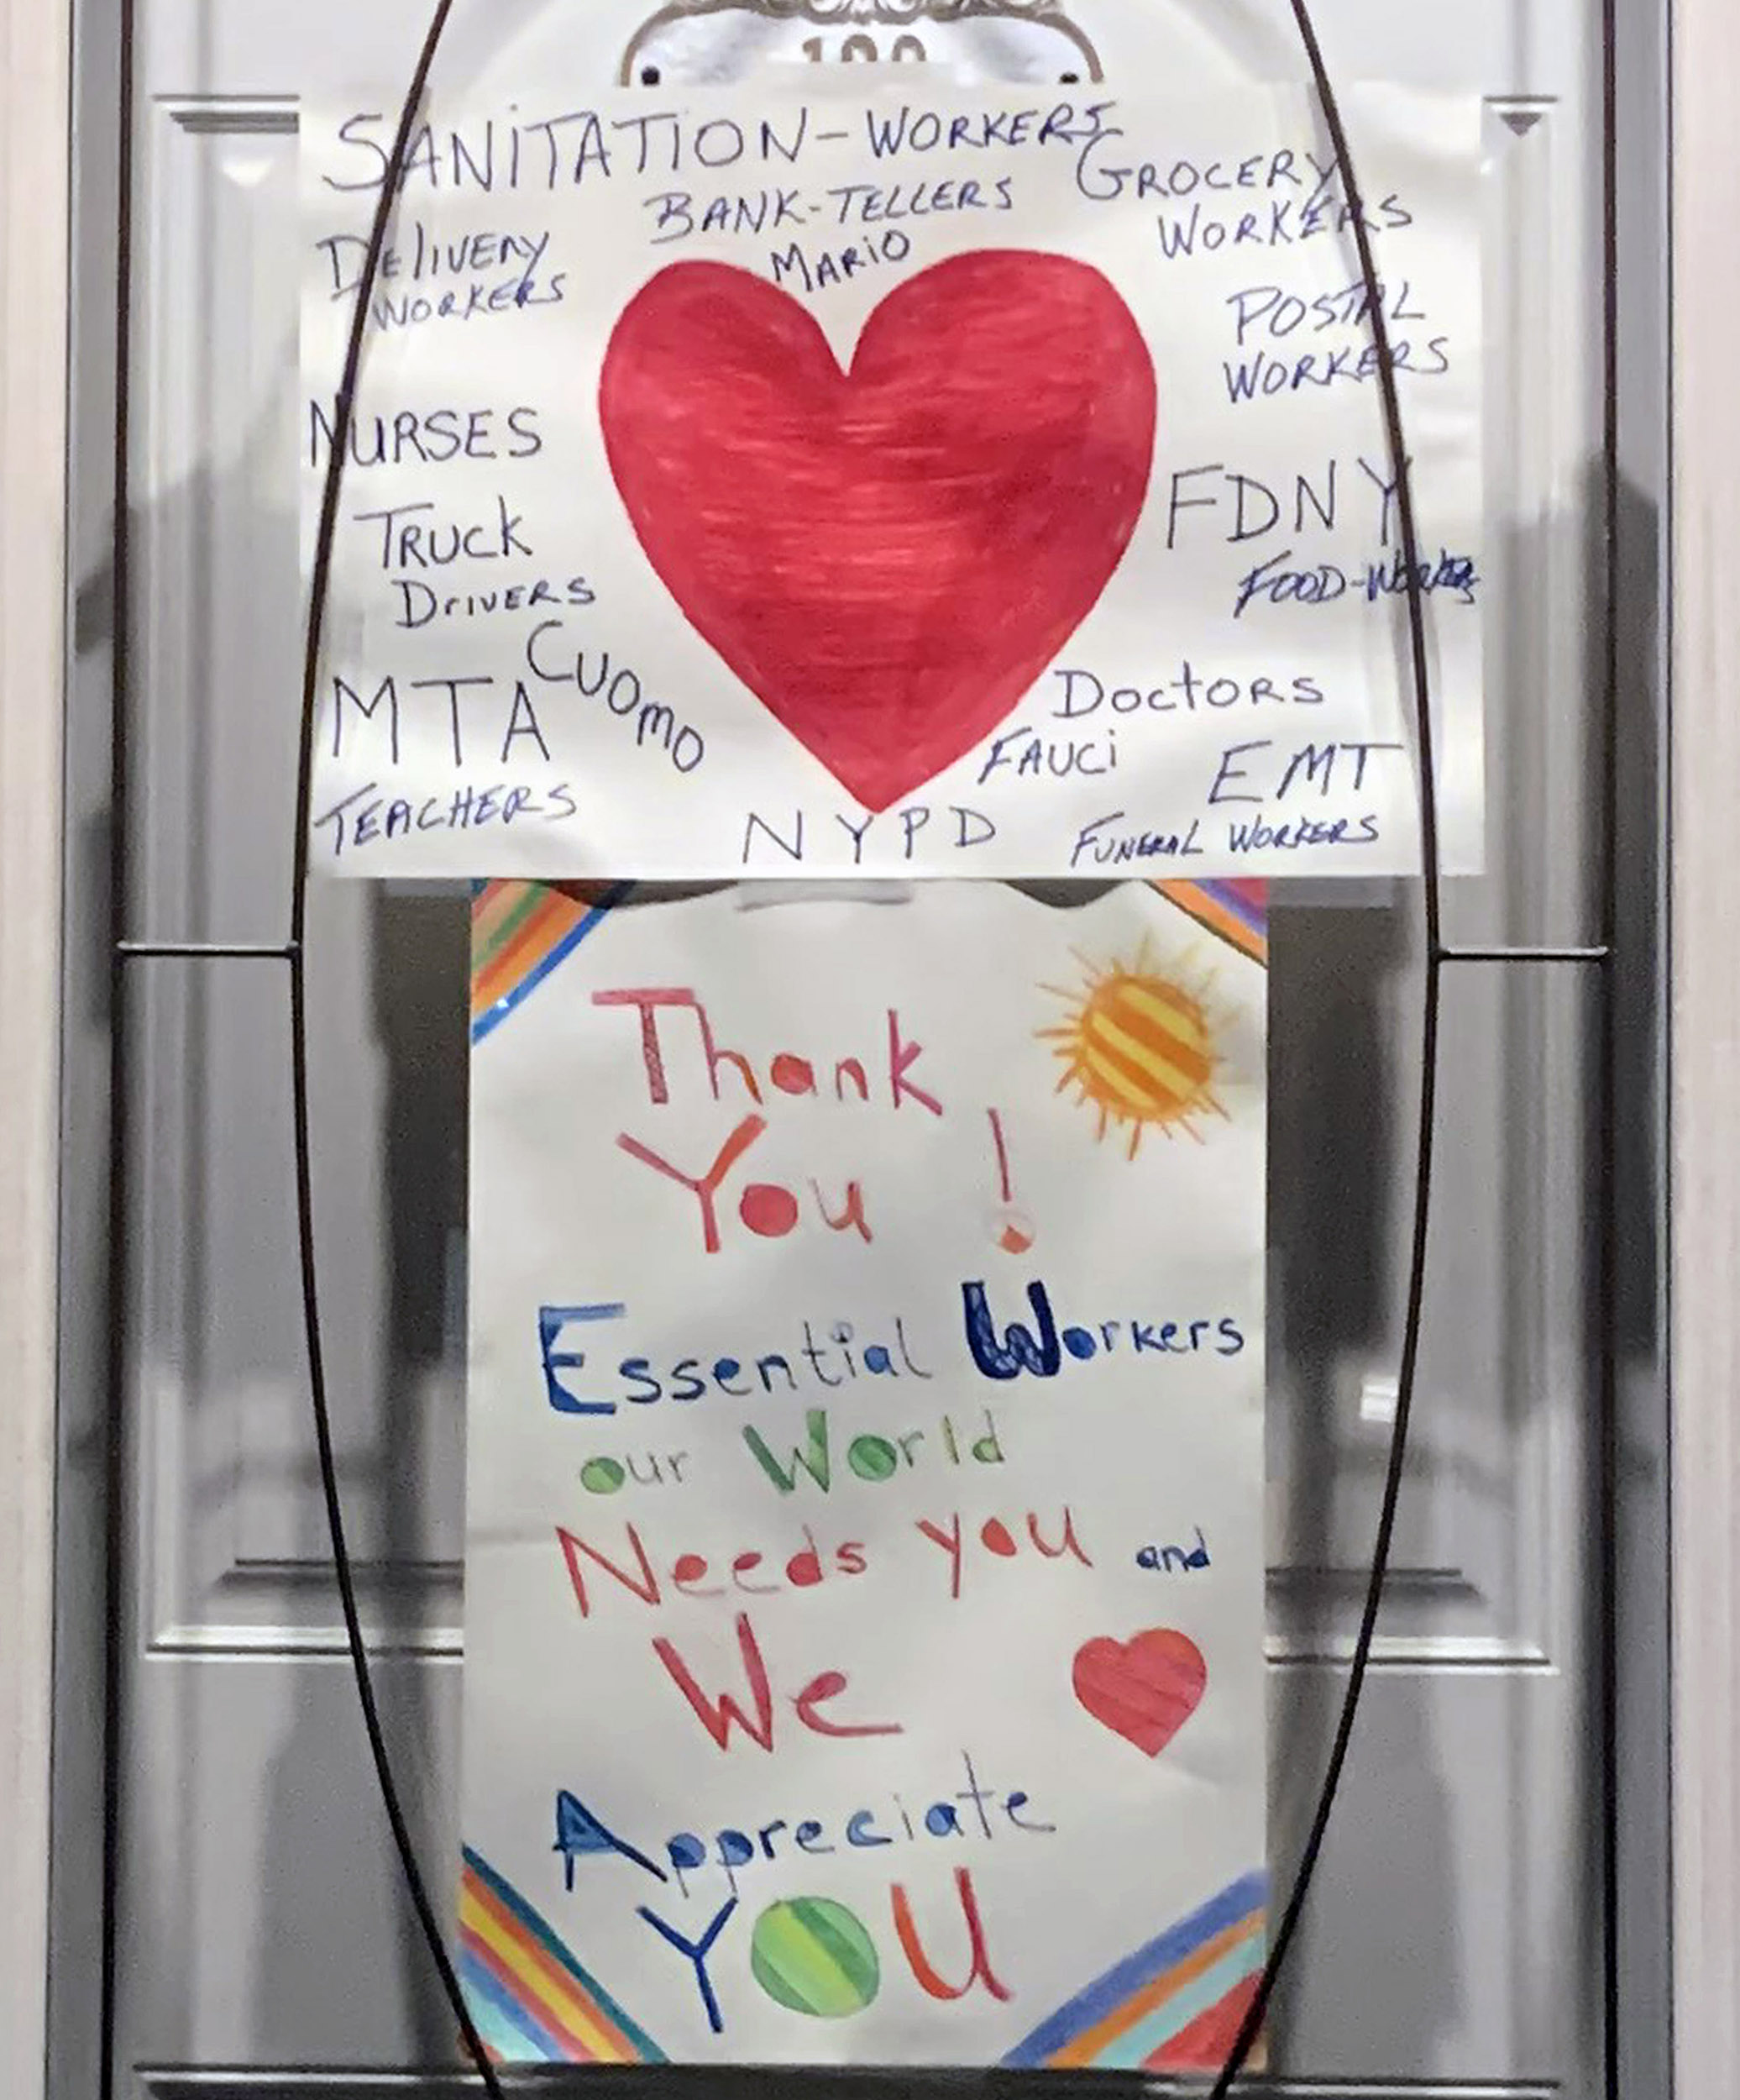 SANITATION-WORKERS
BANK-TELLERS
MARIO
GROCERY
WORKERS
DELIVERY
WORKERS
POSTAL
WORKERS
NURSES
FDNY
TRUCK
DRIVERS
FOOD-WORKERS
CUOMO
MTA
DOCTORS
FAUCI
EMT
TEACHERS
NYPD
FUNERAL WORKERS
Thank
You !
Essential Workers
our World
Needs you and
We
Appreciate
YOU